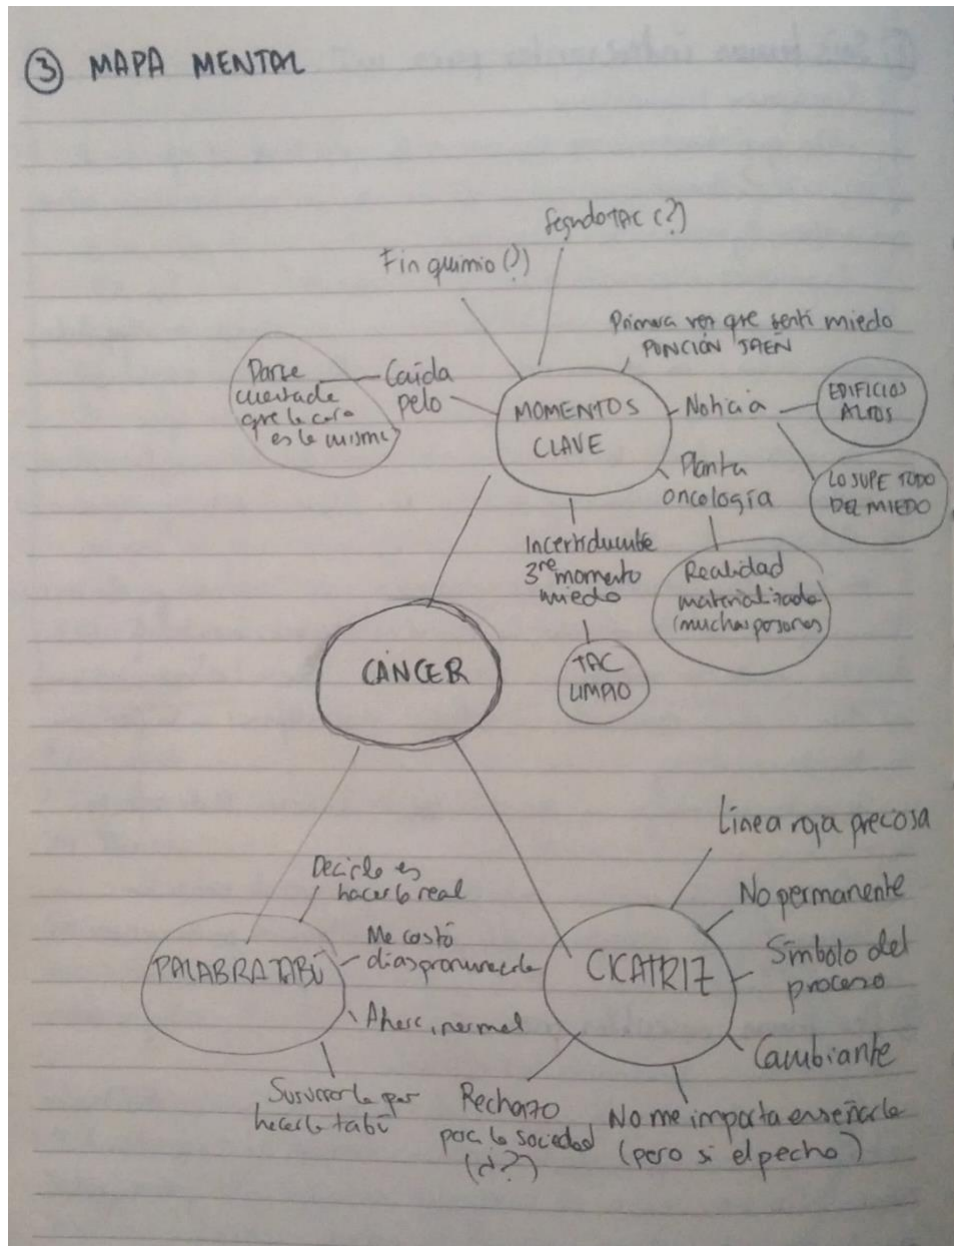 ③ MAPA MENTAL
Segundo TAC (?)
Fin quimio (?)
Primera vez que sentí miedo
PUNCIÓN JAÉN
Darse
cuenta de
que la cara
es la misma
Caída
pelo
MOMENTOS
CLAVE
Noticia
EDIFICIOS
ALTOS
LO SUPE TODO
DEL MIEDO
Planta
oncología
Realidad
materializada
(muchas personas)
Incertidumbre
3er momento
miedo
TAC
LIMPIO
CÁNCER
Decirlo es
hacerlo real
PALABRA TABÚ
Me costó
días pronunciarla
Ahora, normal
Susurrarla por
hacerla tabú
CICATRIZ
Línea roja preciosa
No permanente
Símbolo del
proceso
Cambiante
No me importa enseñarla
(pero si el pecho)
Rechazo
por la sociedad